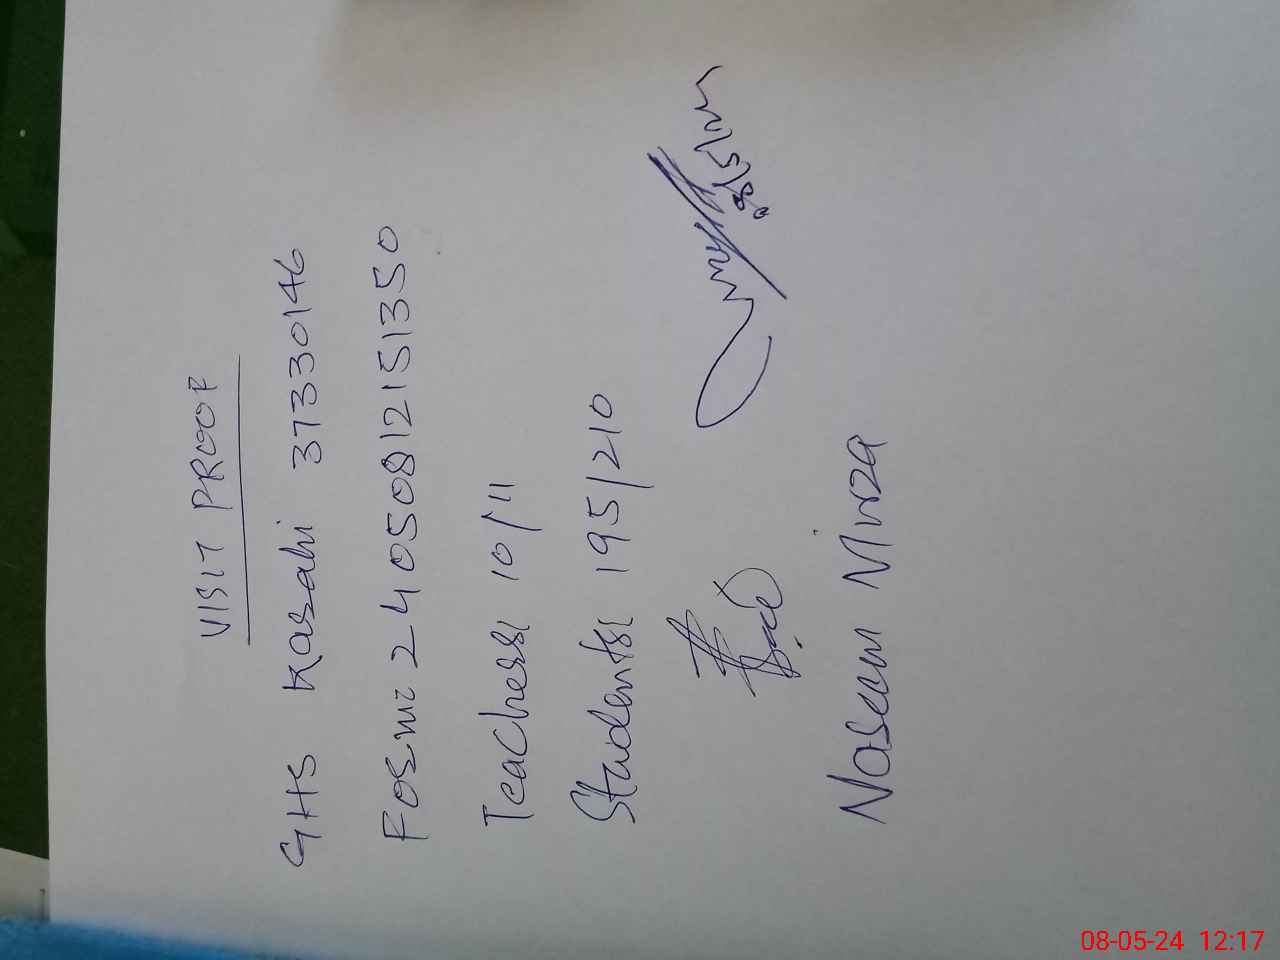 VISIT PROOF
GHS Kasahi 37330146
Fosmi 24050812151350
Teachers: 10/11
Students: 195/210
Naseem Mirza
08-05-24 12:17